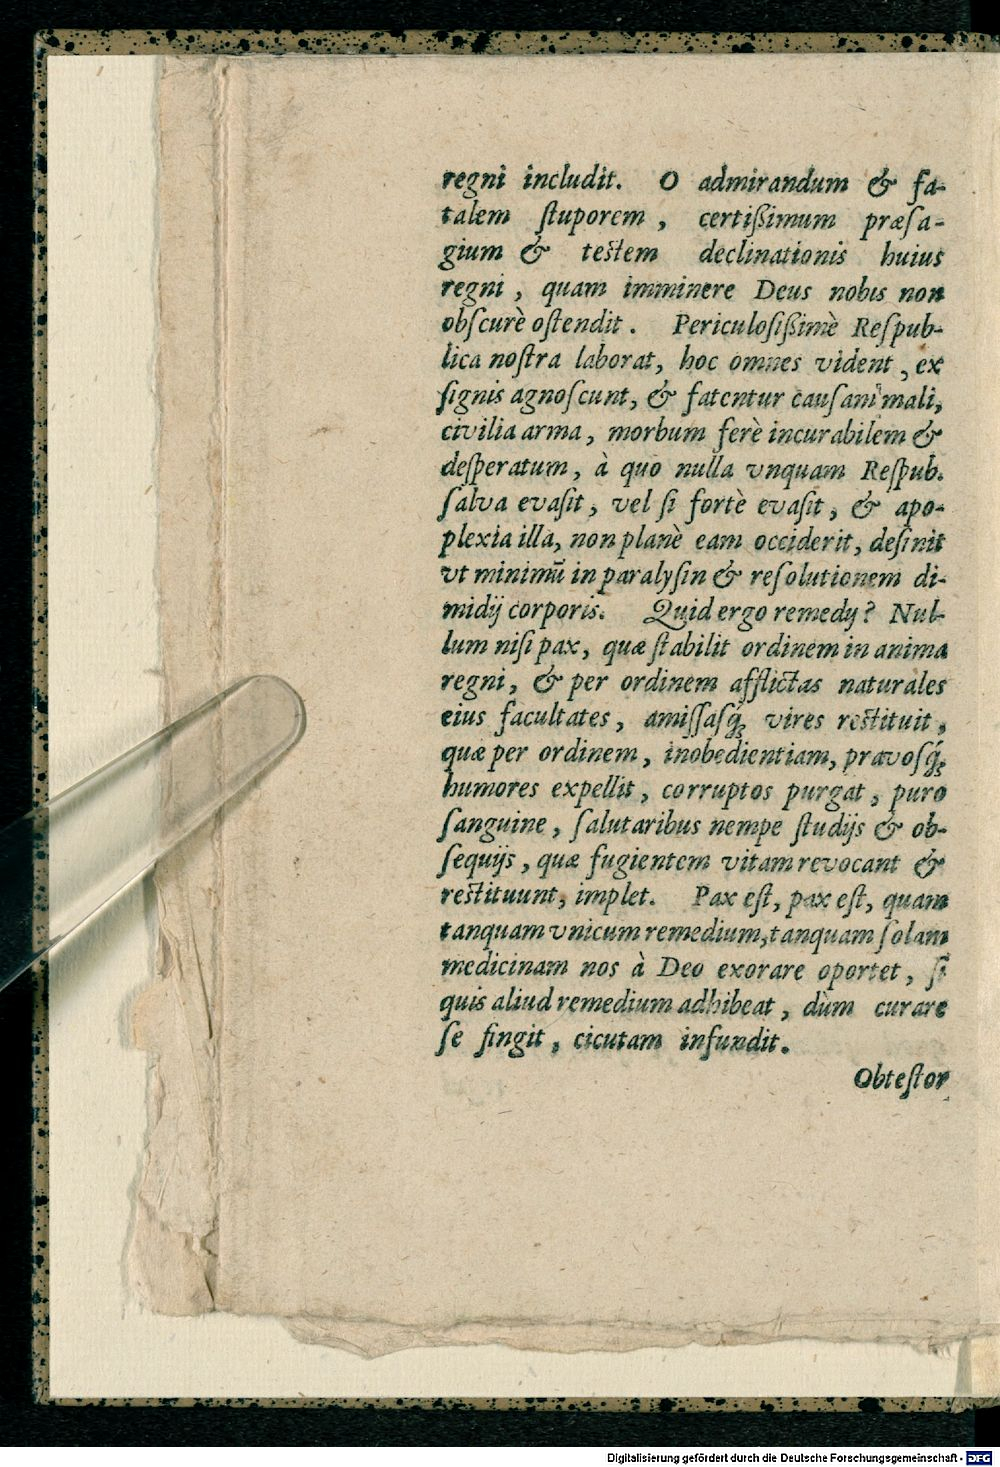 regni includit. O admirandum & fa-
talem ſtuporem, certißimum præſa-
gium & teſtem declinationis huius
regni, quam imminere Deus nobis non
obſcurè oſtendit. Periculoſißimè Reſpub-
lica noſtra laborat, hoc omnes vident, ex
ſignis agnoſcunt, & fatentur cauſam mali,
civilia arma, morbum ferè incurabilem &
deſperatum, à quo nulla vnquam Reſpub.
ſalva evaſit, vel ſi fortè evaſit, & apo-
plexia illa, non planè eam occiderit, deſinit
vt minimũ in paralyſin & reſolutionem di-
midij corporis. Quid ergo remedij? Nul-
lum niſi pax, quæ ſtabilit ordinem in anima
regni, & per ordinem afflictas naturales
eius facultates, amiſſaſq́; vires reſtituit,
quæ per ordinem, inobedientiam, pravoſq́;
humores expellit, corruptos purgat, puro
ſanguine, ſalutaribus nempe ſtudijs & ob-
ſequijs, quæ fugientem vitam revocant &
reſtituunt, implet. Pax eſt, pax eſt, quam
tanquam vnicum remedium, tanquam ſolam
medicinam nos à Deo exorare oportet, ſi
quis aliud remedium adhibeat, dùm curare
ſe fingit, cicutam infundit.
Obteſtor
Digitalisierung gefördert durch die Deutsche Forschungsgemeinschaft - DFG